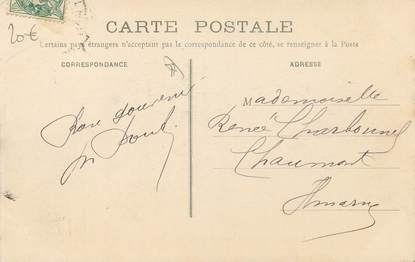 20€
CARTE POSTALE
Certains pays étrangers n'acceptant pas la correspondance de ce côté, se renseigner à la Poste
CORRESPONDANCE
ADRESSE
Bon souvenir
Mademoiselle
Renée Charbonnel
Chaumont
Hmarne